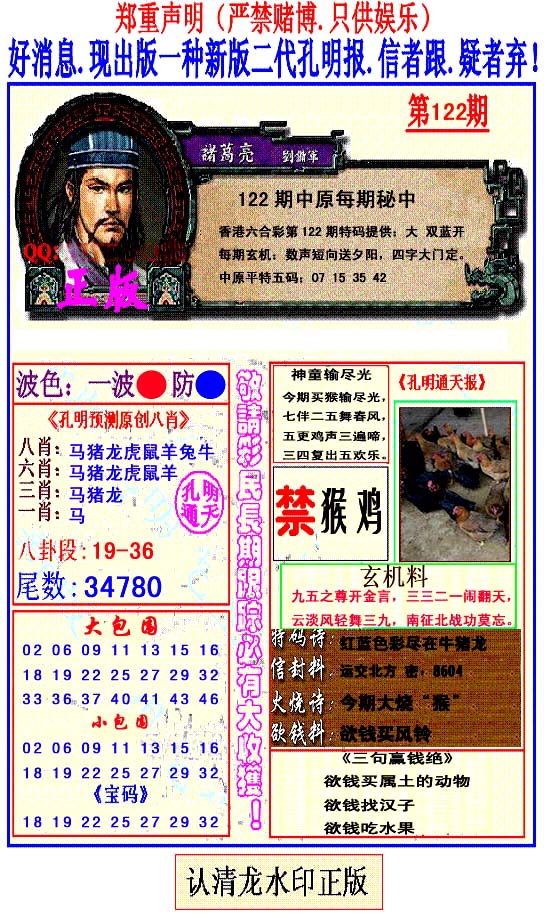 郑重声明（严禁赌博.只供娱乐）
好消息.现出版一种新版二代孔明报.信者跟.疑者弃!
第122期
諸葛亮 劉備軍
122 期中原每期秘中
香港六合彩第 122 期特码提供：大 双蓝开
每期玄机：数声短向送夕阳，四字大门定。
中原平特五码：07 15 35 42
QQ:
正版
波色：一波 防
《孔明预测原创八肖》
八肖：马猪龙虎鼠羊兔牛
六肖：马猪龙虎鼠羊
三肖：马猪龙
一肖：马
孔明
通天
八卦段:19-36
尾数:34780
大包围
02 06 09 11 13 15 16
18 19 22 25 27 29 32
33 36 37 40 41 43 46
小包围
02 06 09 11 13 15 16
18 19 22 25 27 29 32
《宝码》
18 19 22 25 27 29 32
敬請彩民長期跟踪必有大收獲！
神童输尽光
今期买猴输尽光，
七伴二五舞春风，
五更鸡声三遍啼，
三四复出五欢乐。
《孔明通天报》
禁猴鸡
玄机料
九五之尊开金言，三三二一闹翻天，
云淡风轻舞三九，南征北战功莫忘。
特码诗：红蓝色彩尽在牛猪龙
信封料：运交北方 密：8604
火烧诗：今期大烧“猴”
欲钱料：欲钱买风铃
《三句赢钱绝》
欲钱买属土的动物
欲钱找汉子
欲钱吃水果
认清龙水印正版